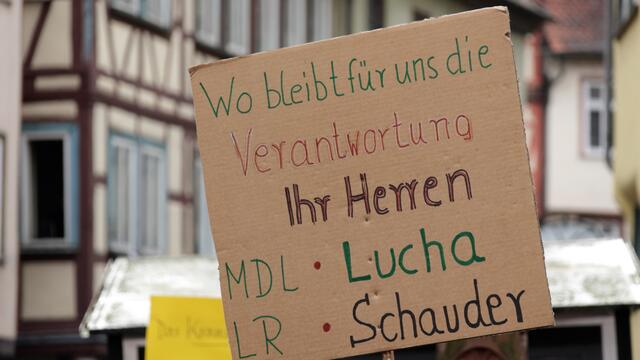 Wo bleibt für uns die
Verantwortung
Ihr Herren
MDL • Lucha
LR • Schauder